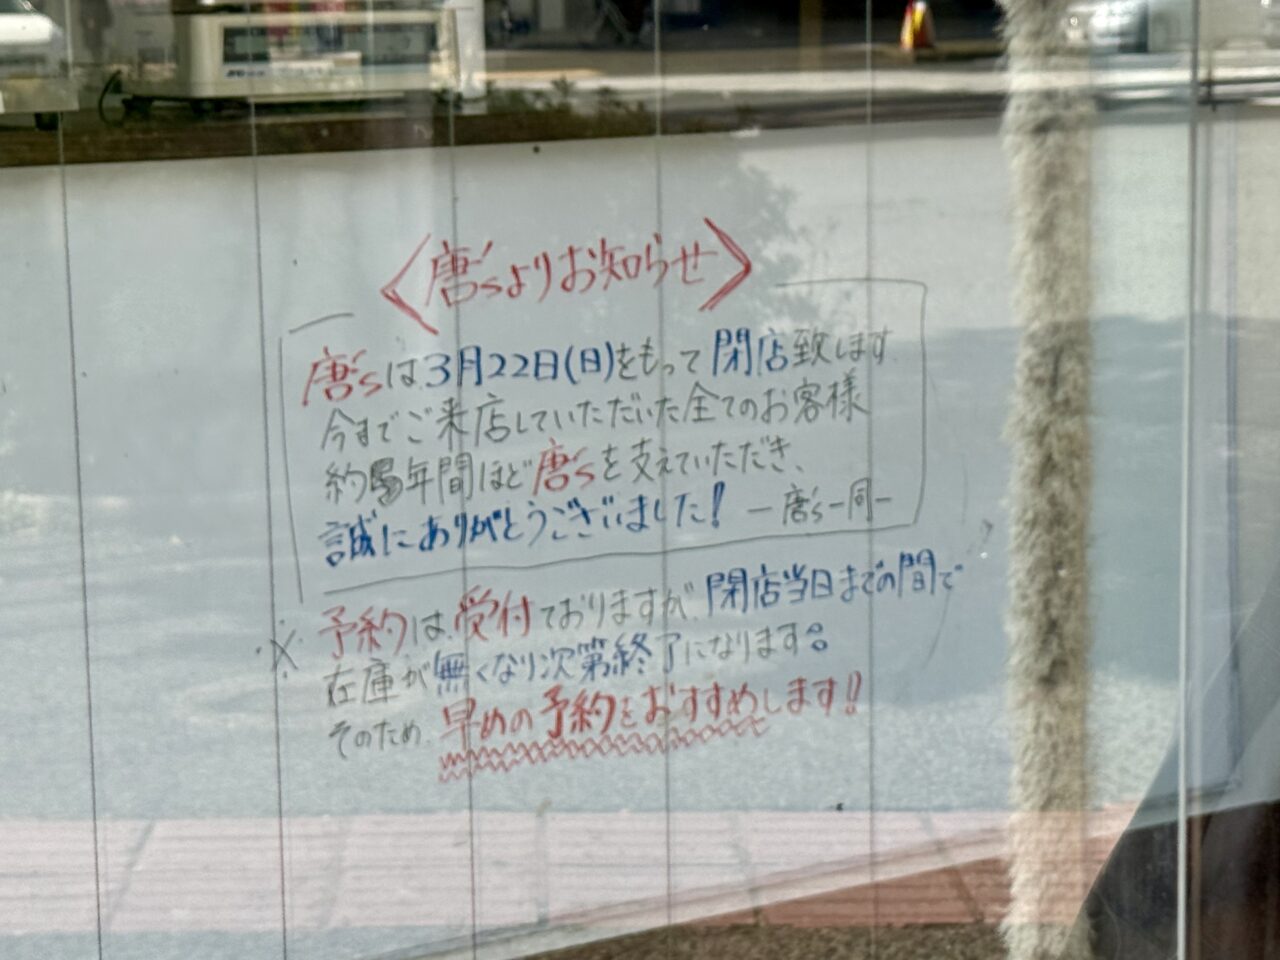 〈唐'sよりお知らせ〉
唐'sは3月22日(日)をもって閉店致します
今までご来店していただいた全てのお客様
約5年間ほど唐'sを支えていただき、
誠にありがとうございました! ー唐's一同ー
※予約は、受付ておりますが、閉店当日までの間で
在庫が無くなり次第終了になります。
そのため、早めの予約をおすすめします!!